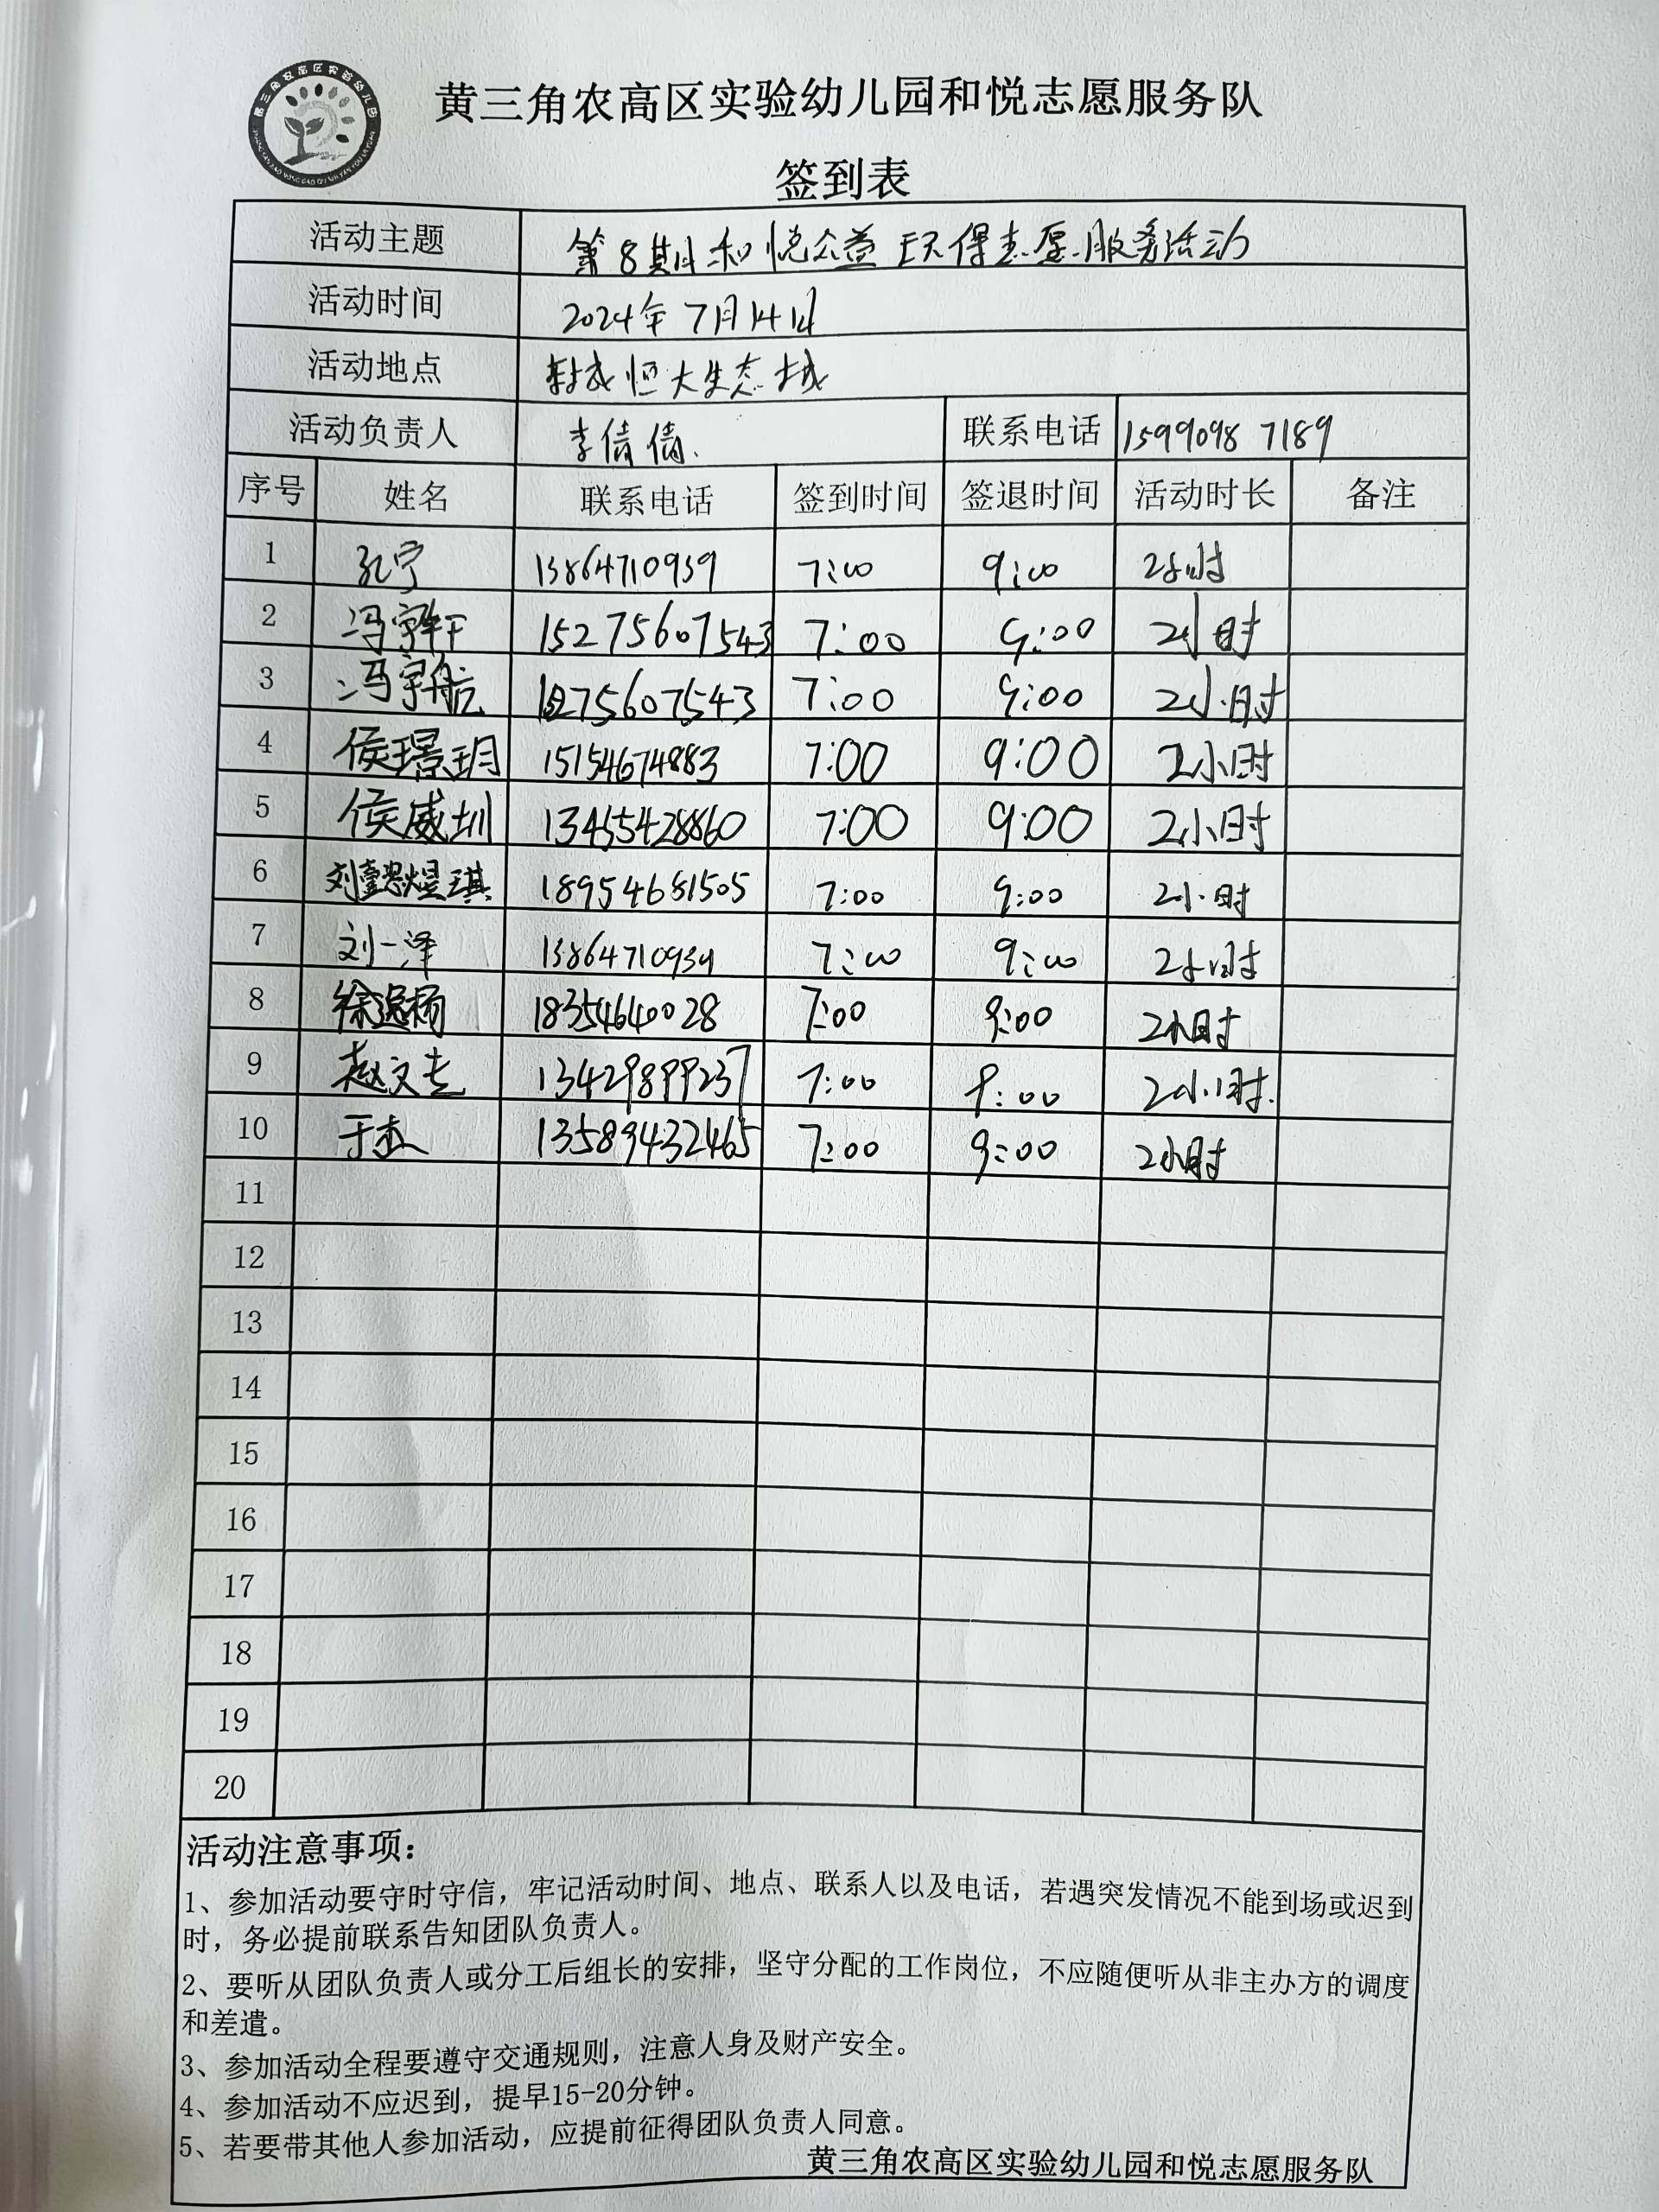 黄三角农高区实验幼儿园和悦志愿服务队
签到表
活动主题 第8期和悦众益环保志愿服务活动
活动时间 2024年7月14日
活动地点 恒大生态城
活动负责人 李倩倩 联系电话 15990987189
序号 姓名 联系电话 签到时间 签退时间 活动时长 备注
1 孔宁 13864710939 7:00 9:00 2小时
2 冯宇轩 15275607543 7:00 9:00 2小时
3 冯宇航 15275607543 7:00 9:00 2小时
4 侯璟玥 15154674883 7:00 9:00 2小时
5 侯威圳 13455428860 7:00 9:00 2小时
6 18954681505 7:00 9:00 2小时
7 刘一泽 13864710939 7:00 9:00 2小时
8 徐逸杨 18354640028 7:00 9:00 2小时
9 赵文志 13429899237 7:00 9:00 2小时
10 于杰 13589432465 7:00 9:00 2小时
11
12
13
14
15
16
17
18
19
20
活动注意事项：
1、参加活动要守时守信，牢记活动时间、地点、联系人以及电话，若遇突发情况不能到场或迟到
时，务必提前联系告知团队负责人。
2、要听从团队负责人或分工后组长的安排，坚守分配的工作岗位，不应随便听从非主办方的调度
和差遣。
3、参加活动全程要遵守交通规则，注意人身及财产安全。
4、参加活动不应迟到，提早15-20分钟。
5、若要带其他人参加活动，应提前征得团队负责人同意。
黄三角农高区实验幼儿园和悦志愿服务队